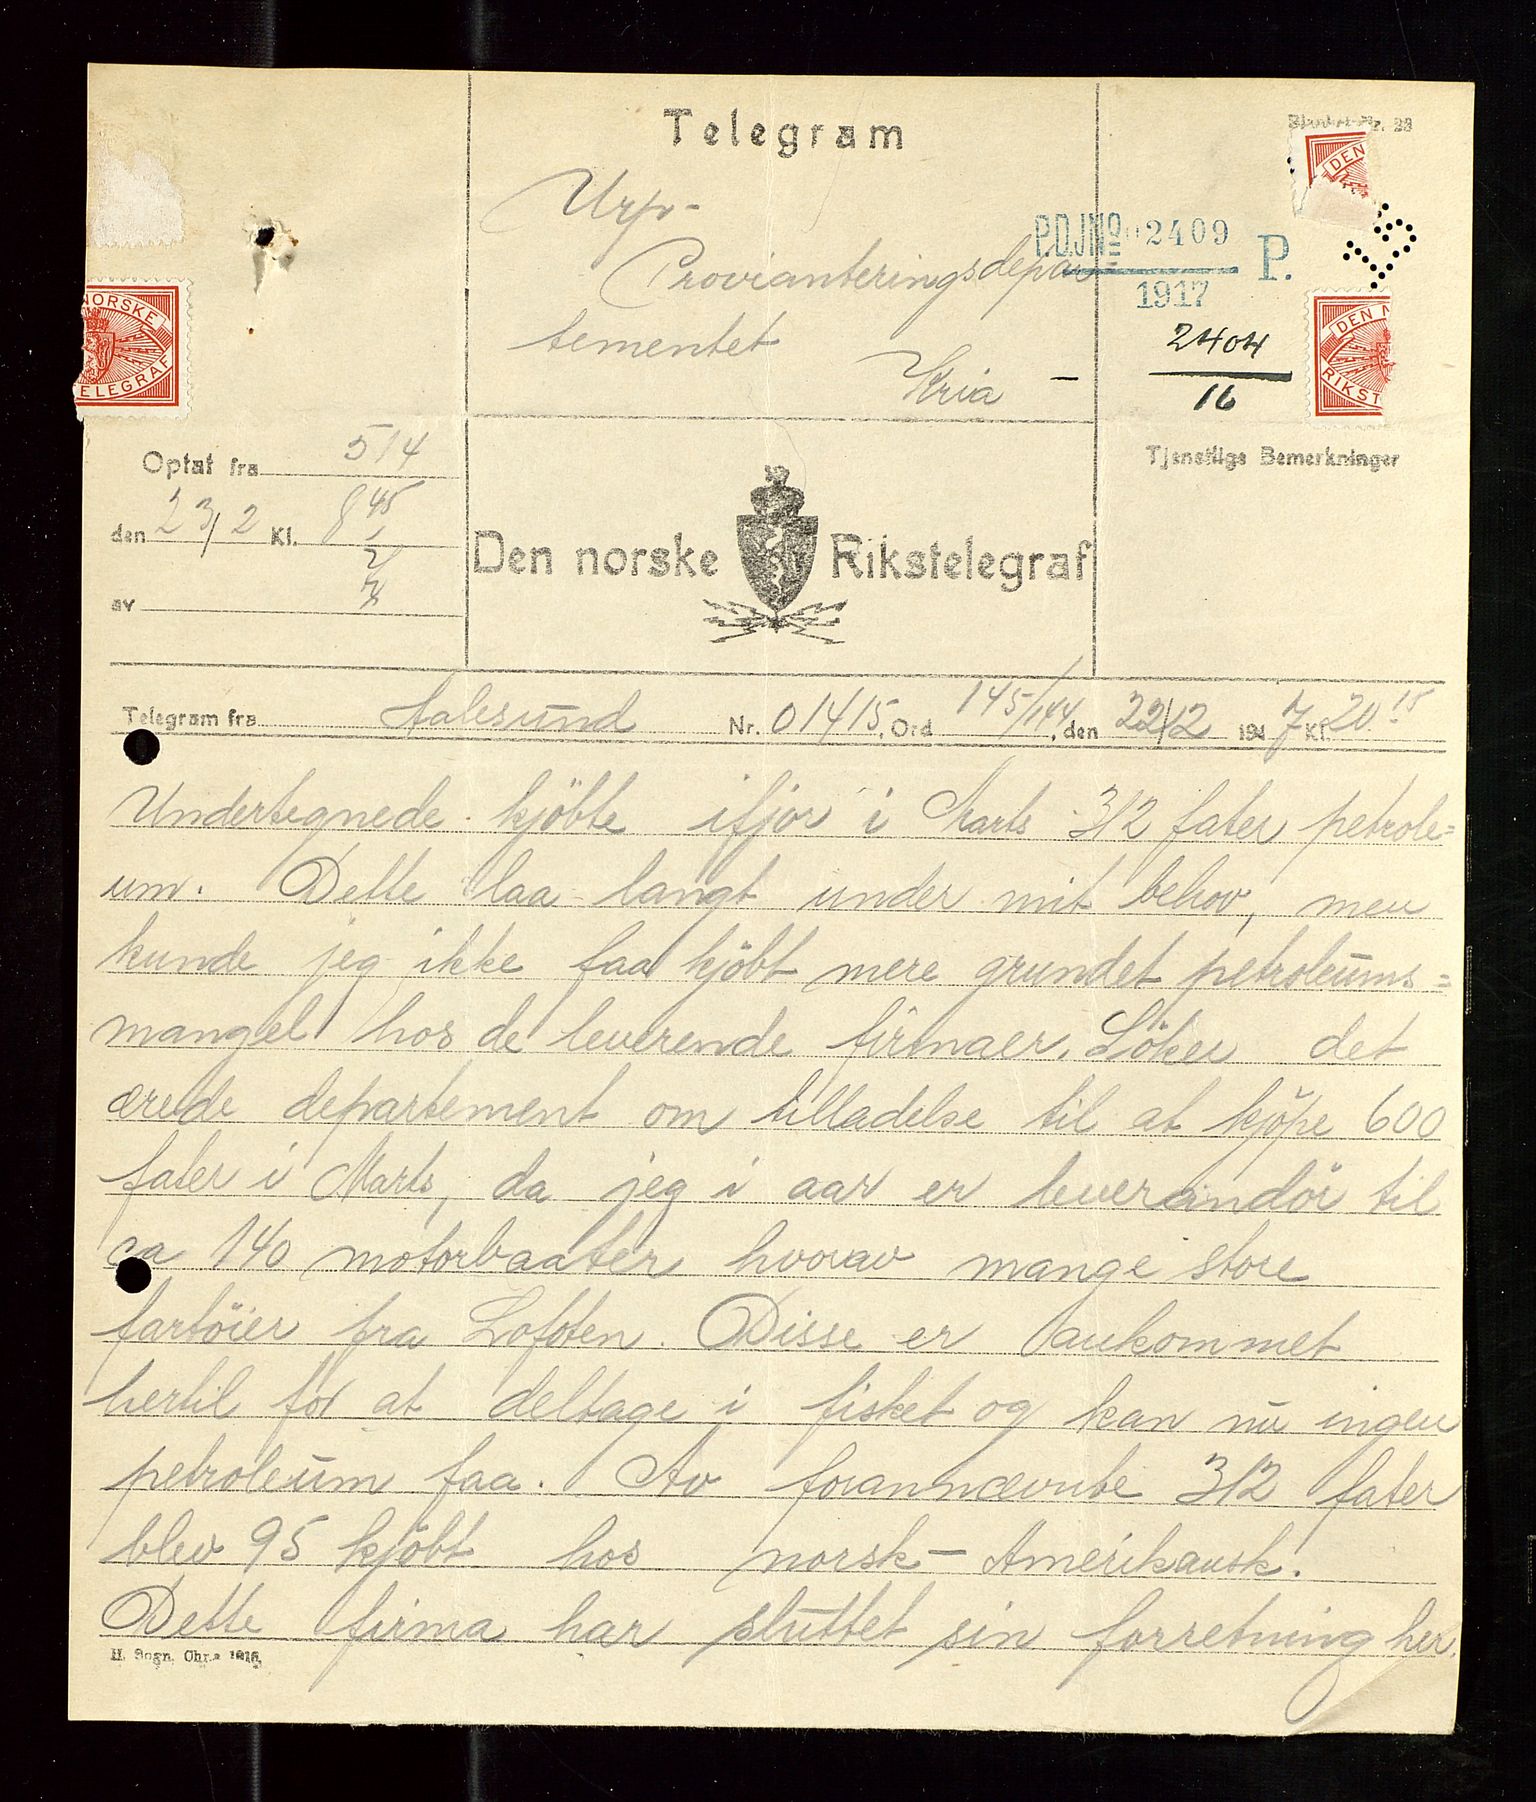 Telegram
Urp-
Provianteringsdepar
tementet
Kria -
P.D.JNº 02409
1917
P.
2404
16
15
NORSKE
TELEGRAF
DEN
DEN N
RIKST
Optat fra 514
den 23/2 Kl. 8 45
av
Den norske Rikstelegraf
Tjenstlige Bemerkninger
Telegram fra Aalesund Nr. 01415, Ord 145/144, den 22/2 1917 Kl. 20 15
Undertegnede kjöbte ifjor i Marts 312 fater petrole=
um. Dette laa langt under mit behov, men
kunde jeg ikke faa kjöbt mere grundet petroleums=
mangel hos de leverende firmaer. Söker det
ærede departement om tilladelse til at kjöpe 600
fater i Marts, da jeg i aar er leverandör til
ca 140 motorbaater hvorav mange store
fartöier fra Lofoten. Disse er ankommet
hertil for at deltage i fisket og kan nu ingen
petroleum faa. Av forannævnte 312 fater
blev 95 kjöbt hos norsk- Amerikansk.
Dette firma har sluttet sin forretning her.
H. Sogn, Chr.a 1916.